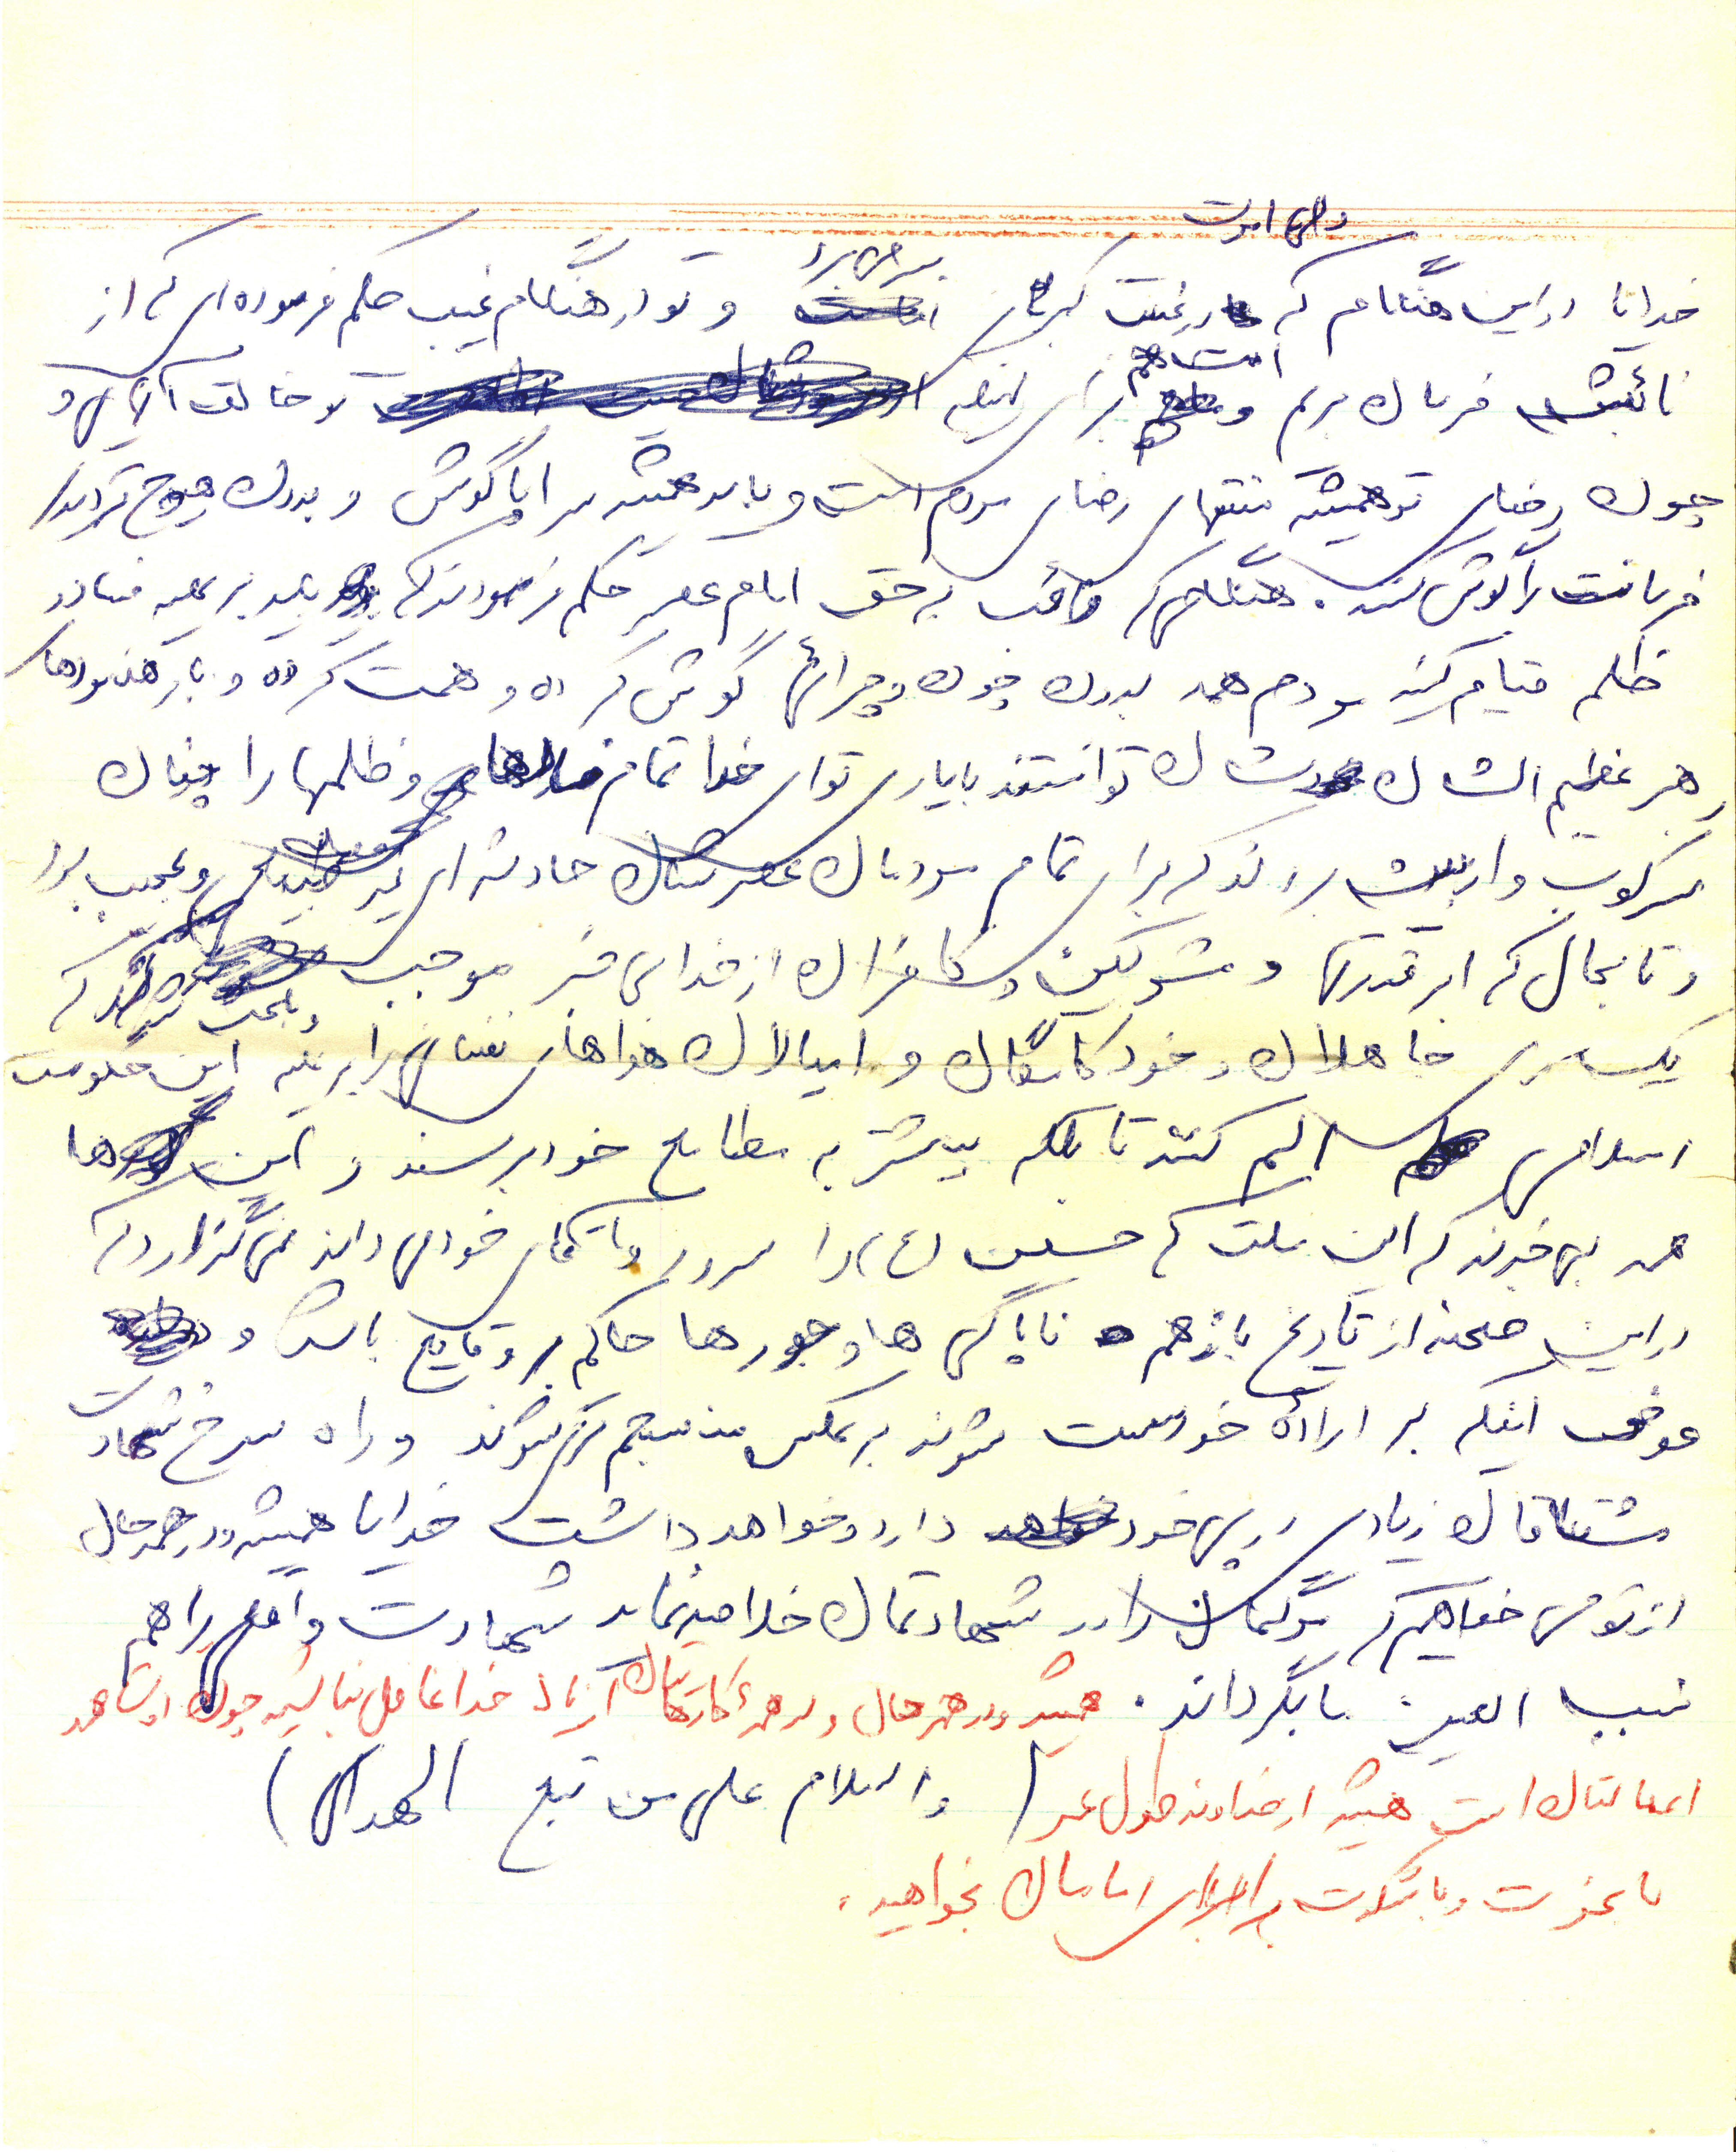 ولی امرت
خدایا در این هنگام که در غیبت کبرای بسر می برد و تو در هنگام غیب حکم فرموده ای که از
نائبش فرمان بریم و امت هم برای اینکه تو خالق آنانی و
چون رضای تو همیشه منتهای رضای مردم است و باید همیشه سراپا گوش و بدون هیچ تردید
فرمانت را گوش کنند. هنگامی که نائب به حق امام عصر حکم فرمودند که باید بر علیه فساد و
ظلم قیام کنید مردم همه بدون چون و چرائی گوش کرده و همت کرده و با رهنمودهای
رهبر عظیم الشان شان توانستند با یاری تو ای خدا تمام فسادها و ظلمها را چنان
سرکوب و از بین بردند که برای تمام مردمان عصرشان حادثه ای غیر و عجیب بود
و تا بحال که ابر قدرتها و مشرکین و کافران از خدا بی خبر موجب و باعث شدند که
یکسری جاهلان و خودکامگان و امیالان هواهای نفسانی را بر علیه این حکومت
اسلامی علم کنند تا بلکه بیشتر به مطامع خود برسند و این ها
همه بی خبرند که این ملت که حسین (ع) را سرور و آقای خود می داند نمی گذارد که
در این صحنه از تاریخ باز هم ناپاکی ها و جورها حاکم بر وقایع باشد و
عوض اینکه بر اراده خود سست شوند برعکس منسجم تر می شوند و راه سرخ شهادت
مشتاقان زیادی در پی خود دارد و خواهد داشت خدایا همیشه و در همه حال
از تو می خواهیم که مرگمان را در شهادتمان خلاصه نماید شهادت واقعی را هم
نصب العین ما بگرداند. همیشه و در همه حال و در همه کارهایتان از یاد خدا غافل نباشید چون او شاهد
اعمالتان است همیشه از خداوند طول عمر (والسلام علی من تبع الهدی)
با عزت و با برای اماممان بخواهید.